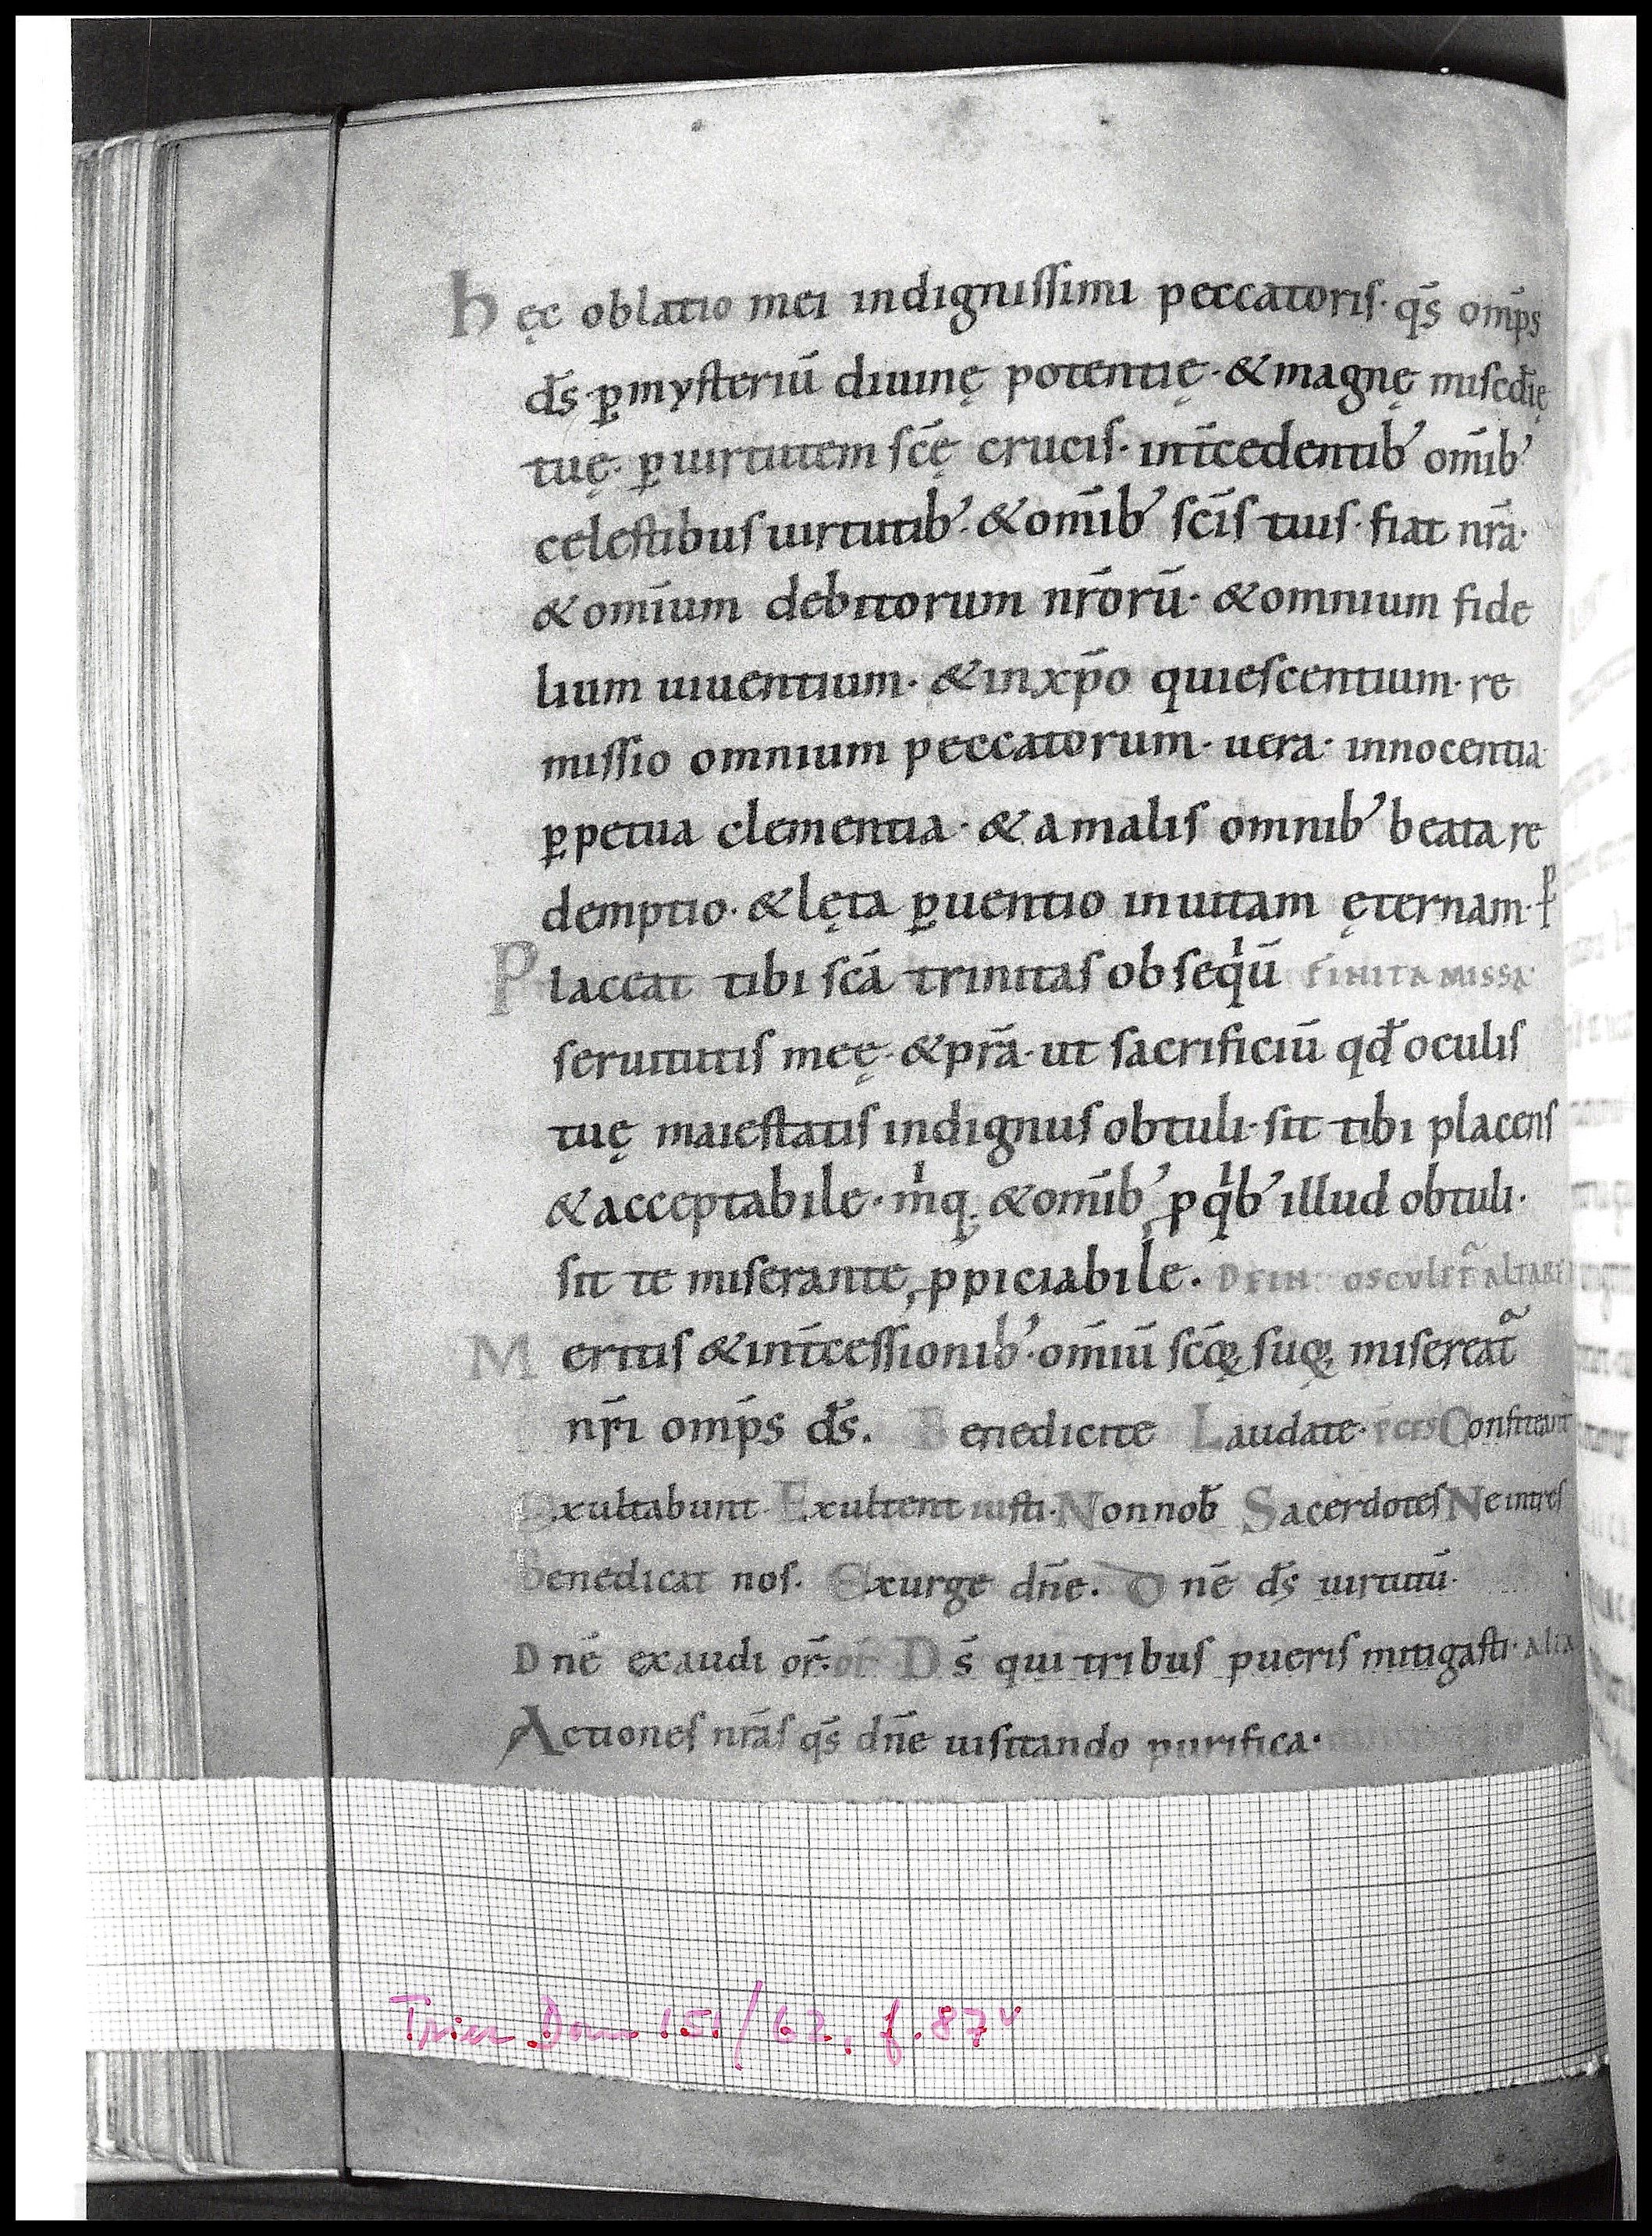 hęc oblatio mei indignissimi peccatoris· qs̄ om̄ps
ds̄· ꝑ mysteriū diuinę potentię· & magnę misc̄dię
tuę· ꝑ uirtutem sc̄ę crucis· int̄cedentib' om̄ib'
cęlestibus uirtutib'· & om̄ib' sc̄īs tuis· fiat nr̄a·
& om̄ium debitorum nr̄orū· & omnium fide
lium uiuentium· & in xp̄o quiescentium· re
missio omnium peccatorum· uera· innocentia·
ꝑpetua clementia· & a malis omnib' beata re
demptio· & lęta ꝑuentio in uitam ęternam· ꝑ
Placeat tibi sc̄a trinitas obsequiū FINITA MISSA·
seruitutis meę· & pr̄a· ut sacrificiū qđ oculis
tuę maiestatis indignus obtuli· sit tibi placens
& acceptabile· mͥq; & om̄ib' ꝓ qͥb' illud obtuli·
sit te miserante, ꝓpiciabile. DEIN OSCULET̃ ALTARE
Meritis & int̄cessionib'· om̄iū sc̄oꝝ suoꝝ misereat̃
nr̄i om̄ps ds̄. Benedicite Laudate· Confiteant̃
Exultabunt· Exultent iusti· Non nob̄ Sacerdotes Ne intres
Benedicat nos. Exurge dn̄e. Dn̄e ds̄ uirtutū·
Dn̄e exaudi or̄· or̄ Ds̄ qui tribus pueris mitigasti· alia
Actiones nr̄as qs̄ dn̄e uisitando purifica·
Trier Dom 151/62, f. 87v